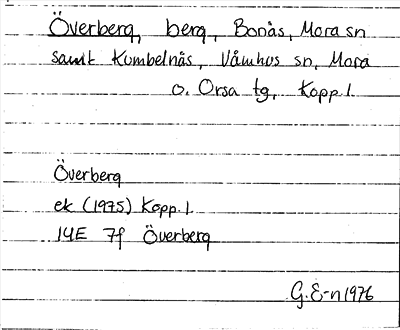 Överberg, berg, Bonäs, Mora sn
samt Kumbelnäs, Våmhus sn, Mora
o. Orsa tg, Kopp. l.
Överberg
ek (1975) Kopp. l.
14E 7f Överberg
G. E-n 1976